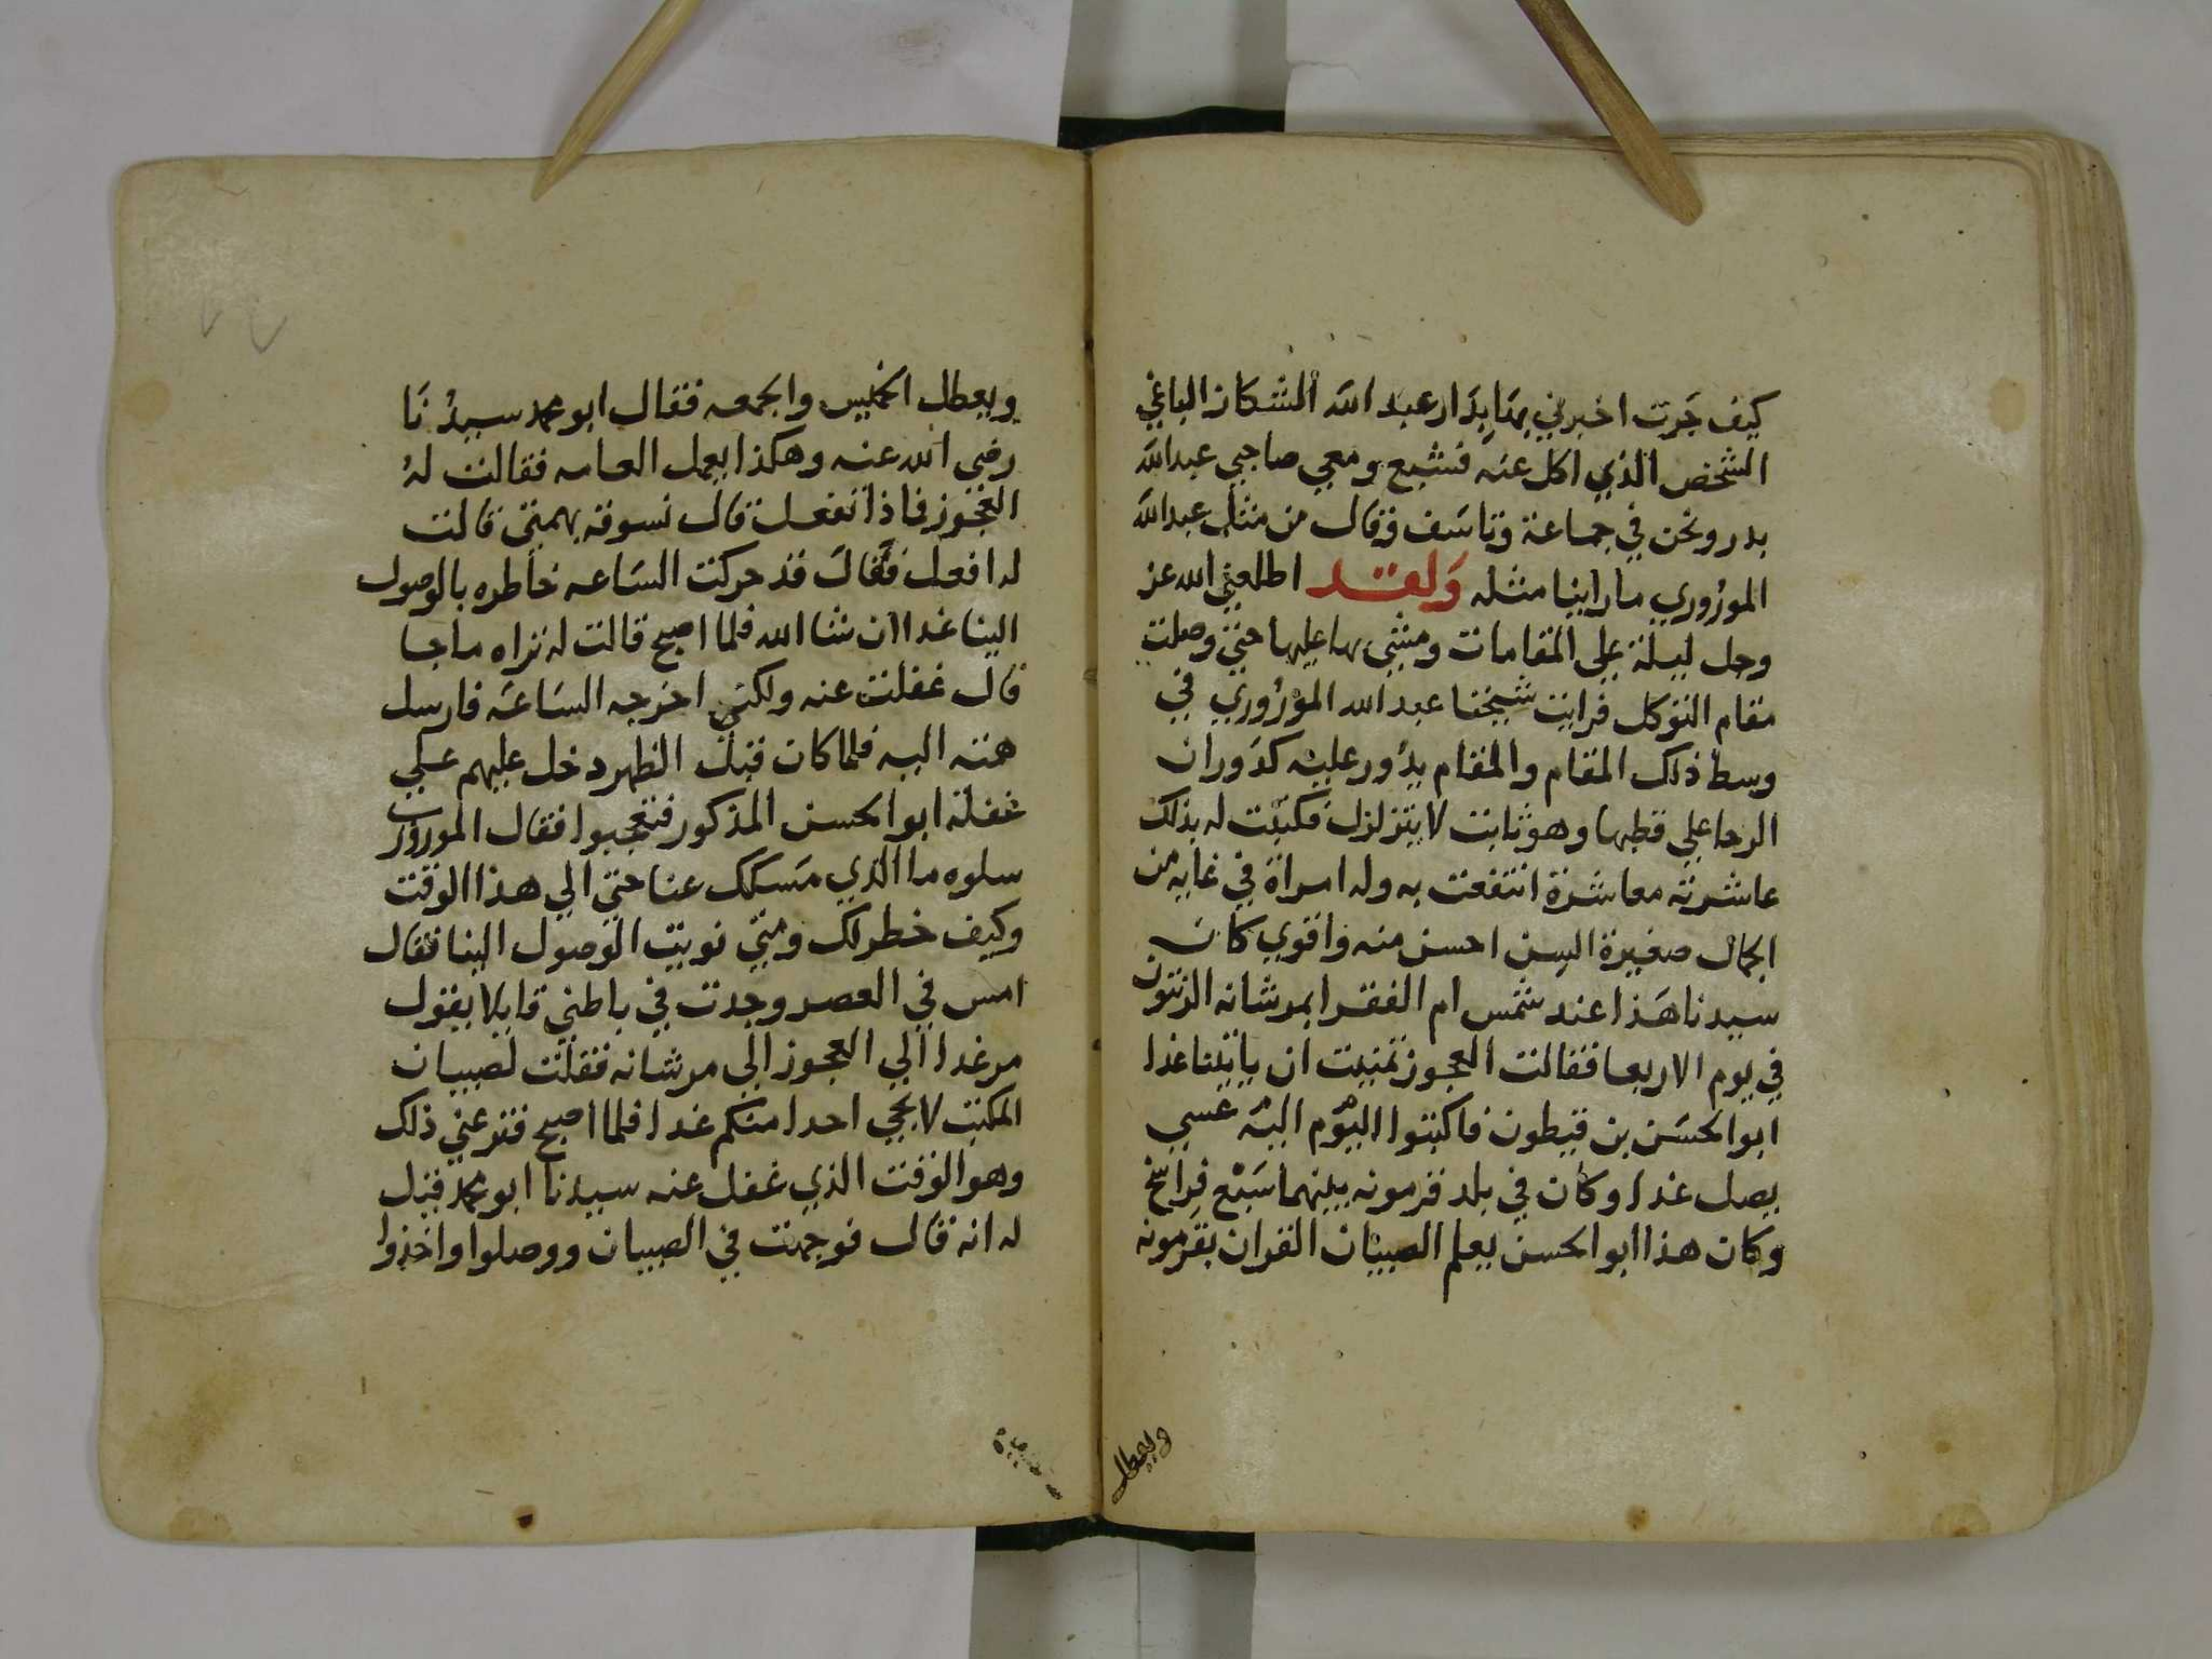 كيف جَرت اخبرني بهَا بِدَار عبد الله الشكاز الباغي
الشخص الذي اكل عنه فشبع ومعي صاحبي عبدالله
بدر ونحن في جماعة وتاسَف وقال من مثل عبدالله
المورُوري ما راينا مثله وَلقد اطلعني الله عز
وجل ليلة علي المقامات ومشي بها عليها حتي وصلت
مقام التوكل فرايت شيخنا عبد الله المورُوري في
وسط ذلك المقام والمقام يدُور عليه كدَوران
الرحا علي قطبها وهو ثابت لا يتزلزل فكتبت له بذلك
عاشرته معاشرة انتفعت به وله امراة في غاية من
الجمال صغيرة السن احسن منه واقوي كان
سيدنا هَذا عند شمس ام الفقرا بمرشانه الزيتون
في يوم الاربعا فقالت العجوز تمنيت ان ياتينا غدا
ابو الحسَن بن قيطون فاكتبوا اليوم اليه عسي
يصل غدا وكان في بلد قرمونه بينهما سَبْع فراسخ
وكان هذا ابو الحسن يعلم الصبيان القران بقرمونه
ويعطل
ويعطل الخميس والجمعه فقال ابو محمد سيدُنَا
رضي الله عنه وهكذا يعمل العامه فقالت لهُ
العجوز فماذا تفعل قال نسوقه بهمتي قالت
له افعل فقَالَ قد حركت السَاعه خاطره بالوصول
الينا غدا ان شا الله فلما اصبح قالت له تراه ما جا
قال غفلت عنه ولكني اخرجه السَاعَه فارسل
همته اليه فلما كان قبل الظهر دخل عليهم علي
غفلة ابو الحسن المذكور فتعجبوا فقال الموروري
سلوه ما الذي مَسكك عنا حتي الي هذا الوقت
وكيف خطر لك ومتي نويت الوصول الينا فقال
امس في العصر وجدت في باطني قايلا يقول
مر غدا الي العجوز الي مرشانه فقلت لصبيان
المكتب لا يجي احدا منكم غدا فلما اصبح فتر عني ذلك
وهو الوقت الذي غفل عنه سيدنا ابو محمد قيل
له انه قال فوجهت في الصبيان ووصلوا واخذوا